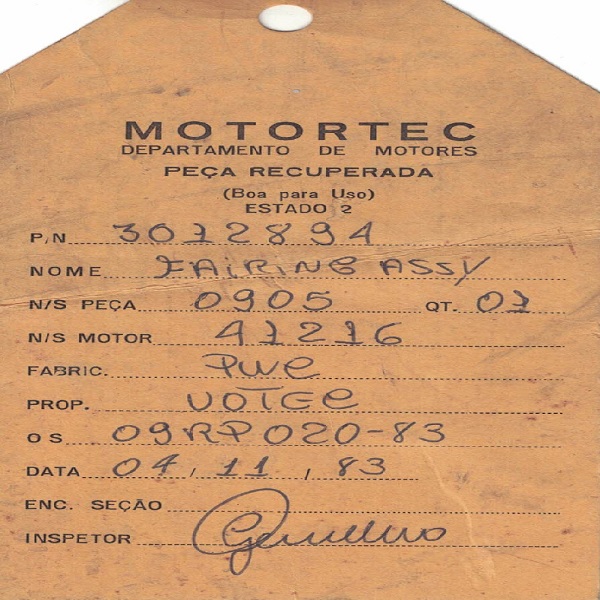 MOTORTEC
DEPARTAMENTO DE MOTORES
PEÇA RECUPERADA
(Boa para Uso)
ESTADO 2
P/N 3012894
NOME FAIRING ASSY
N/S PEÇA 0905 QT. 01
N/S MOTOR 41216
FABRIC. PWC
PROP. VOTEC
OS 09RP020-83
DATA 04, 11, 83
ENC. SEÇÃO
INSPETOR